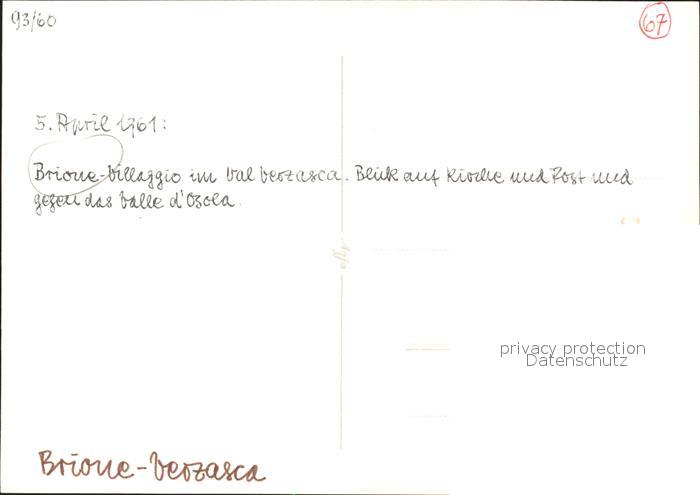 93/60
67
5. April 1961:
Brione-Villaggio im Val Verzasca. Blick auf Kirche und Post und
gegen das Valle d'Osola.
privacy protection
Datenschutz
Brione-Verzasca